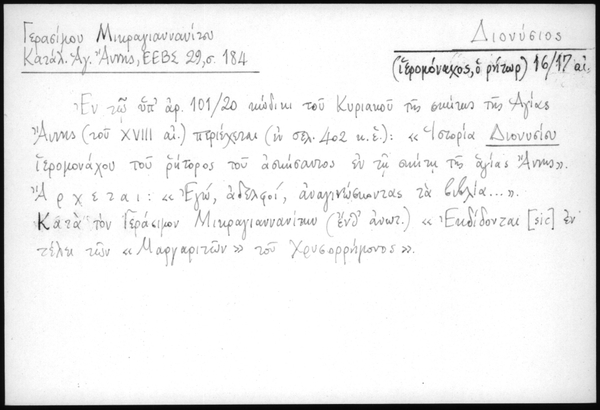 Γερασίμου Μικραγιαννανίτου
Κατάλ. Ἁγ. Ἄννης, ΕΕΒΣ 29, σ. 184
Διονύσιος
(ἱερομόναχος, ὁ ρήτωρ) 16/17 αἰ.
Ἐν τῷ ὑπ' ἀρ. 101/20 κώδικι τοῦ Κυριακοῦ τῆς σκήτης τῆς Ἁγίας
Ἄννης (τοῦ XVIII αἰ.) περιέχεται (ἐν σελ. 402 κ.ἑ.): «Ἱστορία Διονυσίου
ἱερομονάχου τοῦ ῥήτορος τοῦ ἀσκήσαντος ἐν τῇ σκήτῃ τῆς ἁγίας Ἄννης».
Ἄρχεται: «Ἐγώ, ἀδελφοί, ἀναγινώσκοντας τὰ βιβλία...».
Κατὰ τὸν Γεράσιμον Μικραγιαννανίτην (ἔνθ' ἀνωτ.) «Ἐκδίδονται [sic] ἐν
τέλει τῶν «Μαργαριτῶν» τοῦ Χρυσορρήμονος».